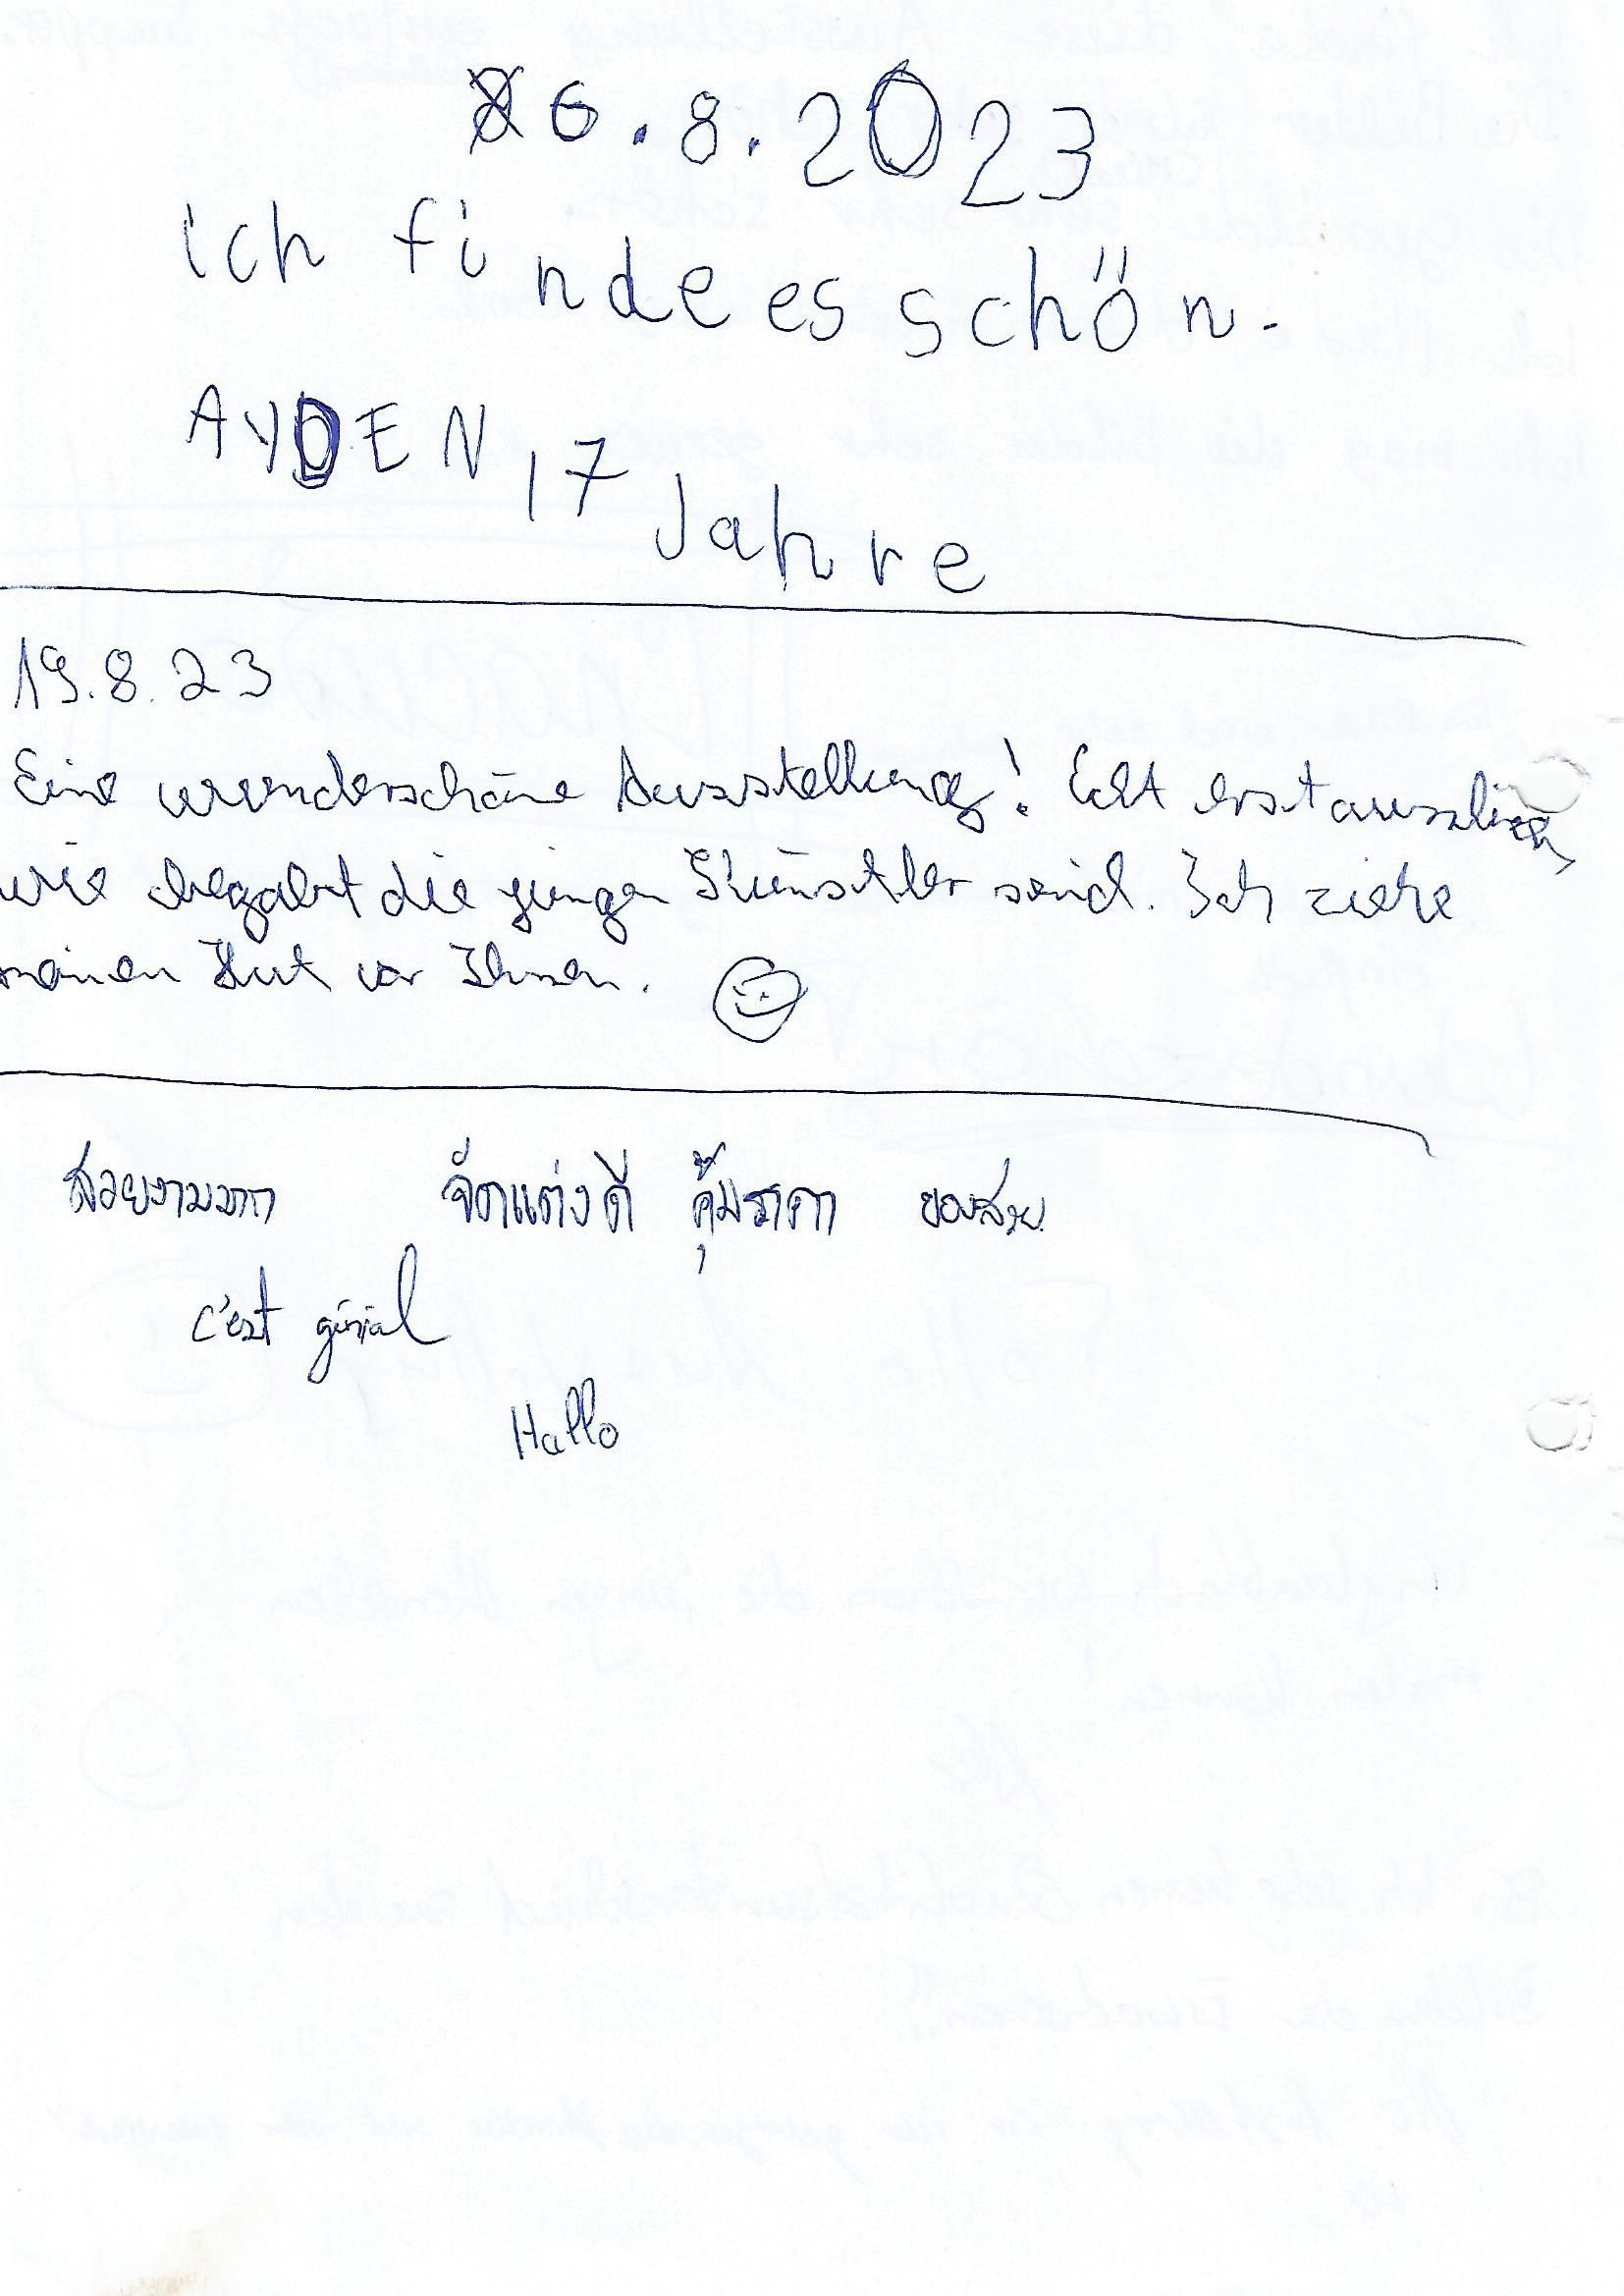 26.8.2023
ich finde es schön.
AYDEN, 7
Jahre
19.8.23
Eine wunderschöne Ausstellung! Echt erstaunlich,
wie begabt die jungen Künstler sind. Ich ziehe
meinen Hut vor Ihnen.
สวยงามมาก จัดแต่งดี คุ้มราคา ของสวย
c'est génial
Hallo